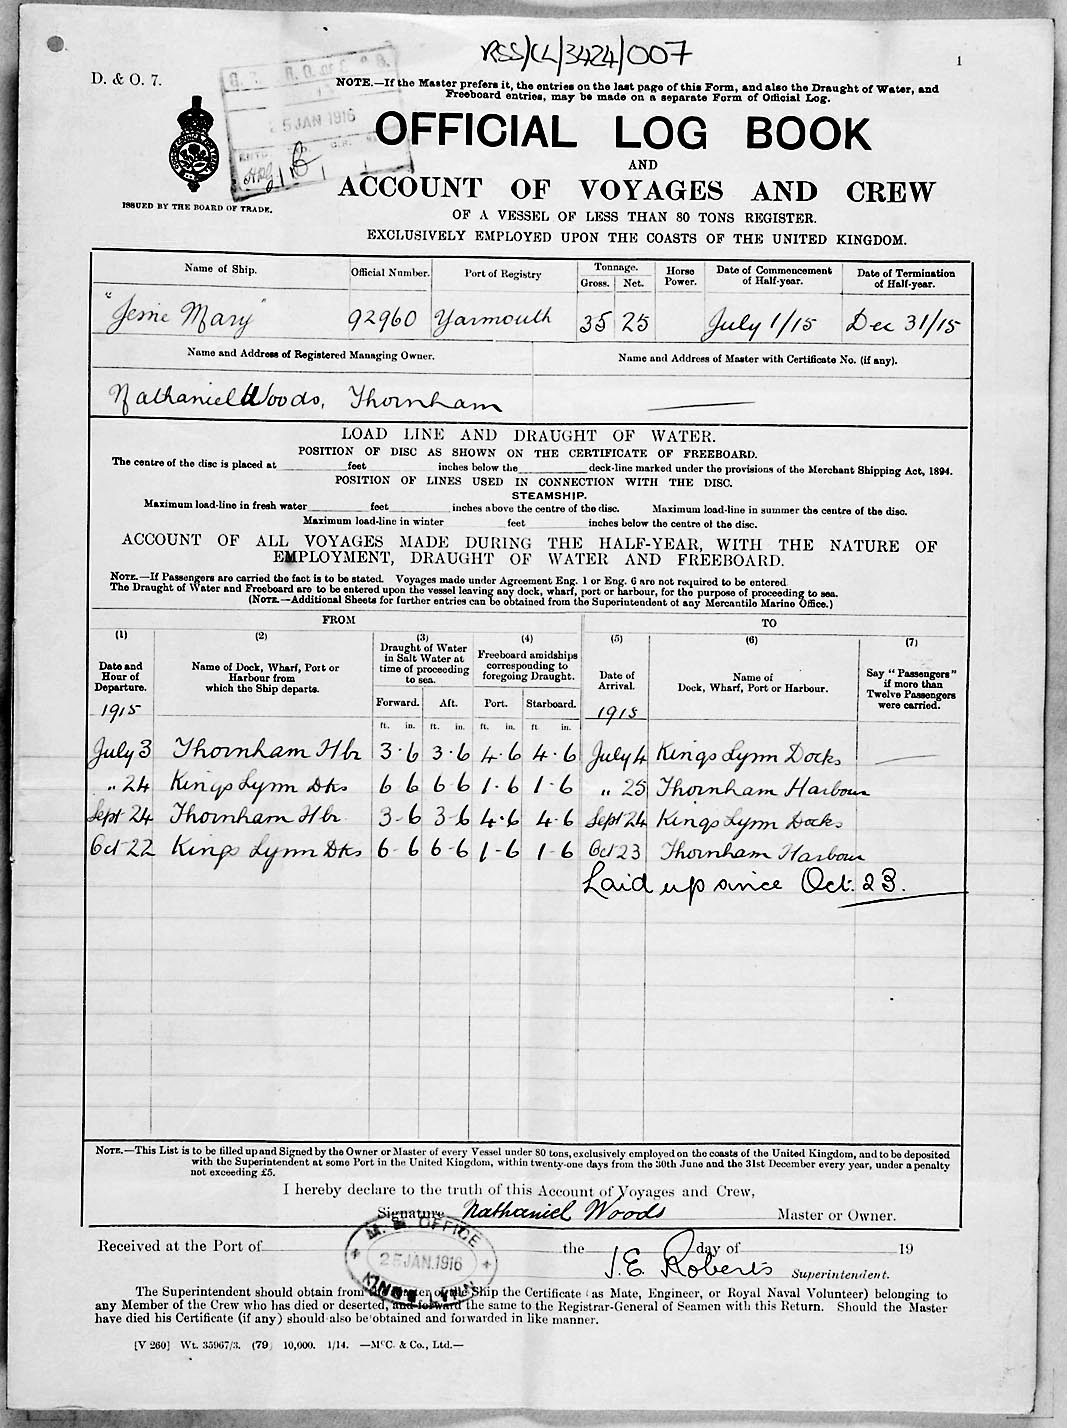 RSS/CL/3424/007
1
D. & O. 7.
NOTE.—If the Master prefers it, the entries on the last page of this Form, and also the Draught of Water, and
Freeboard entries, may be made on a separate Form of Official Log.
25 JAN 1916
OFFICIAL LOG BOOK
AND
ACCOUNT OF VOYAGES AND CREW
ISSUED BY THE BOARD OF TRADE.
OF A VESSEL OF LESS THAN 80 TONS REGISTER.
EXCLUSIVELY EMPLOYED UPON THE COASTS OF THE UNITED KINGDOM.
Name of Ship. Official Number. Port of Registry Tonnage. Gross. Net. Horse Power. Date of Commencement of Half-year. Date of Termination of Half-year.
"Jessie Mary" 92960 Yarmouth 35 25 July 1/15 Dec 31/15
Name and Address of Registered Managing Owner. Name and Address of Master with Certificate No. (if any).
Nathaniel Woods, Thornham
LOAD LINE AND DRAUGHT OF WATER.
POSITION OF DISC AS SHOWN ON THE CERTIFICATE OF FREEBOARD.
The centre of the disc is placed at feet inches below the deck-line marked under the provisions of the Merchant Shipping Act, 1894.
POSITION OF LINES USED IN CONNECTION WITH THE DISC.
STEAMSHIP.
Maximum load-line in fresh water feet inches above the centre of the disc. Maximum load-line in summer the centre of the disc.
Maximum load-line in winter feet inches below the centre of the disc.
ACCOUNT OF ALL VOYAGES MADE DURING THE HALF-YEAR, WITH THE NATURE OF
EMPLOYMENT, DRAUGHT OF WATER AND FREEBOARD.
NOTE.—If Passengers are carried the fact is to be stated. Voyages made under Agreement Eng. 1 or Eng. 6 are not required to be entered
The Draught of Water and Freeboard are to be entered upon the vessel leaving any dock, wharf, port or harbour, for the purpose of proceeding to sea.
(NOTE.—Additional Sheets for further entries can be obtained from the Superintendent of any Mercantile Marine Office.)
FROM TO
(1) (2) (3) (4) (5) (6) (7)
Date and Hour of Departure. Name of Dock, Wharf, Port or Harbour from which the Ship departs. Draught of Water in Salt Water at time of proceeding to sea. Freeboard amidships corresponding to foregoing Draught. Date of Arrival. Name of Dock, Wharf, Port or Harbour. Say "Passengers" if more than Twelve Passengers were carried.
Forward. Aft. Port. Starboard.
1915 1915
ft. in. ft. in. ft. in. ft in.
July 3 Thornham Hbr 3·6 3·6 4·6 4·6 July 4 Kings Lynn Docks
" 24 Kings Lynn Dks 6 6 6·6 1·6 1·6 " 25 Thornham Harbour
Sept 24 Thornham Hbr 3-6 3·6 4·6 4·6 Sept 24 Kings Lynn Docks
Oct 22 Kings Lynn Dks 6-6 6-6 1-6 1-6 Oct 23 Thornham Harbour
Laid up since Oct. 23.
NOTE.—This List is to be filled up and Signed by the Owner or Master of every Vessel under 80 tons, exclusively employed on the coasts of the United Kingdom, and to be deposited
with the Superintendent at some Port in the United Kingdom, within twenty-one days from the 30th June and the 31st December every year, under a penalty
not exceeding £5.
I hereby declare to the truth of this Account of Voyages and Crew,
Signature Nathaniel Woods Master or Owner.
M. M. OFFICE
25 JAN. 1916
KING'S LYNN
Received at the Port of the day of 19
J. E. Roberts Superintendent.
The Superintendent should obtain from the Master of the Ship the Certificate (as Mate, Engineer, or Royal Naval Volunteer) belonging to
any Member of the Crew who has died or deserted, and forward the same to the Registrar-General of Seamen with this Return. Should the Master
have died his Certificate (if any) should also be obtained and forwarded in like manner.
[V 260] Wt. 35967/3. (79) 10,000. 1/14. —McC. & Co., Ltd.—